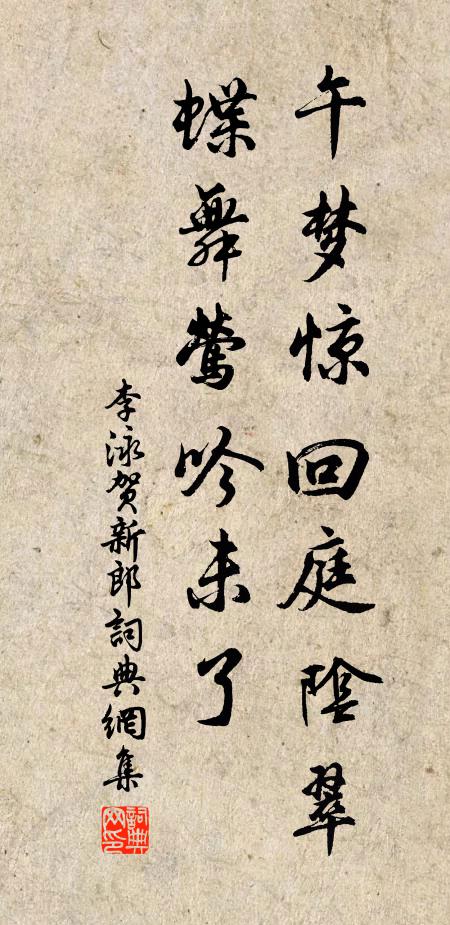 午梦惊回庭陰翠
蝶舞莺吟未了
李泳贺新郎詞典網集
詞典網印